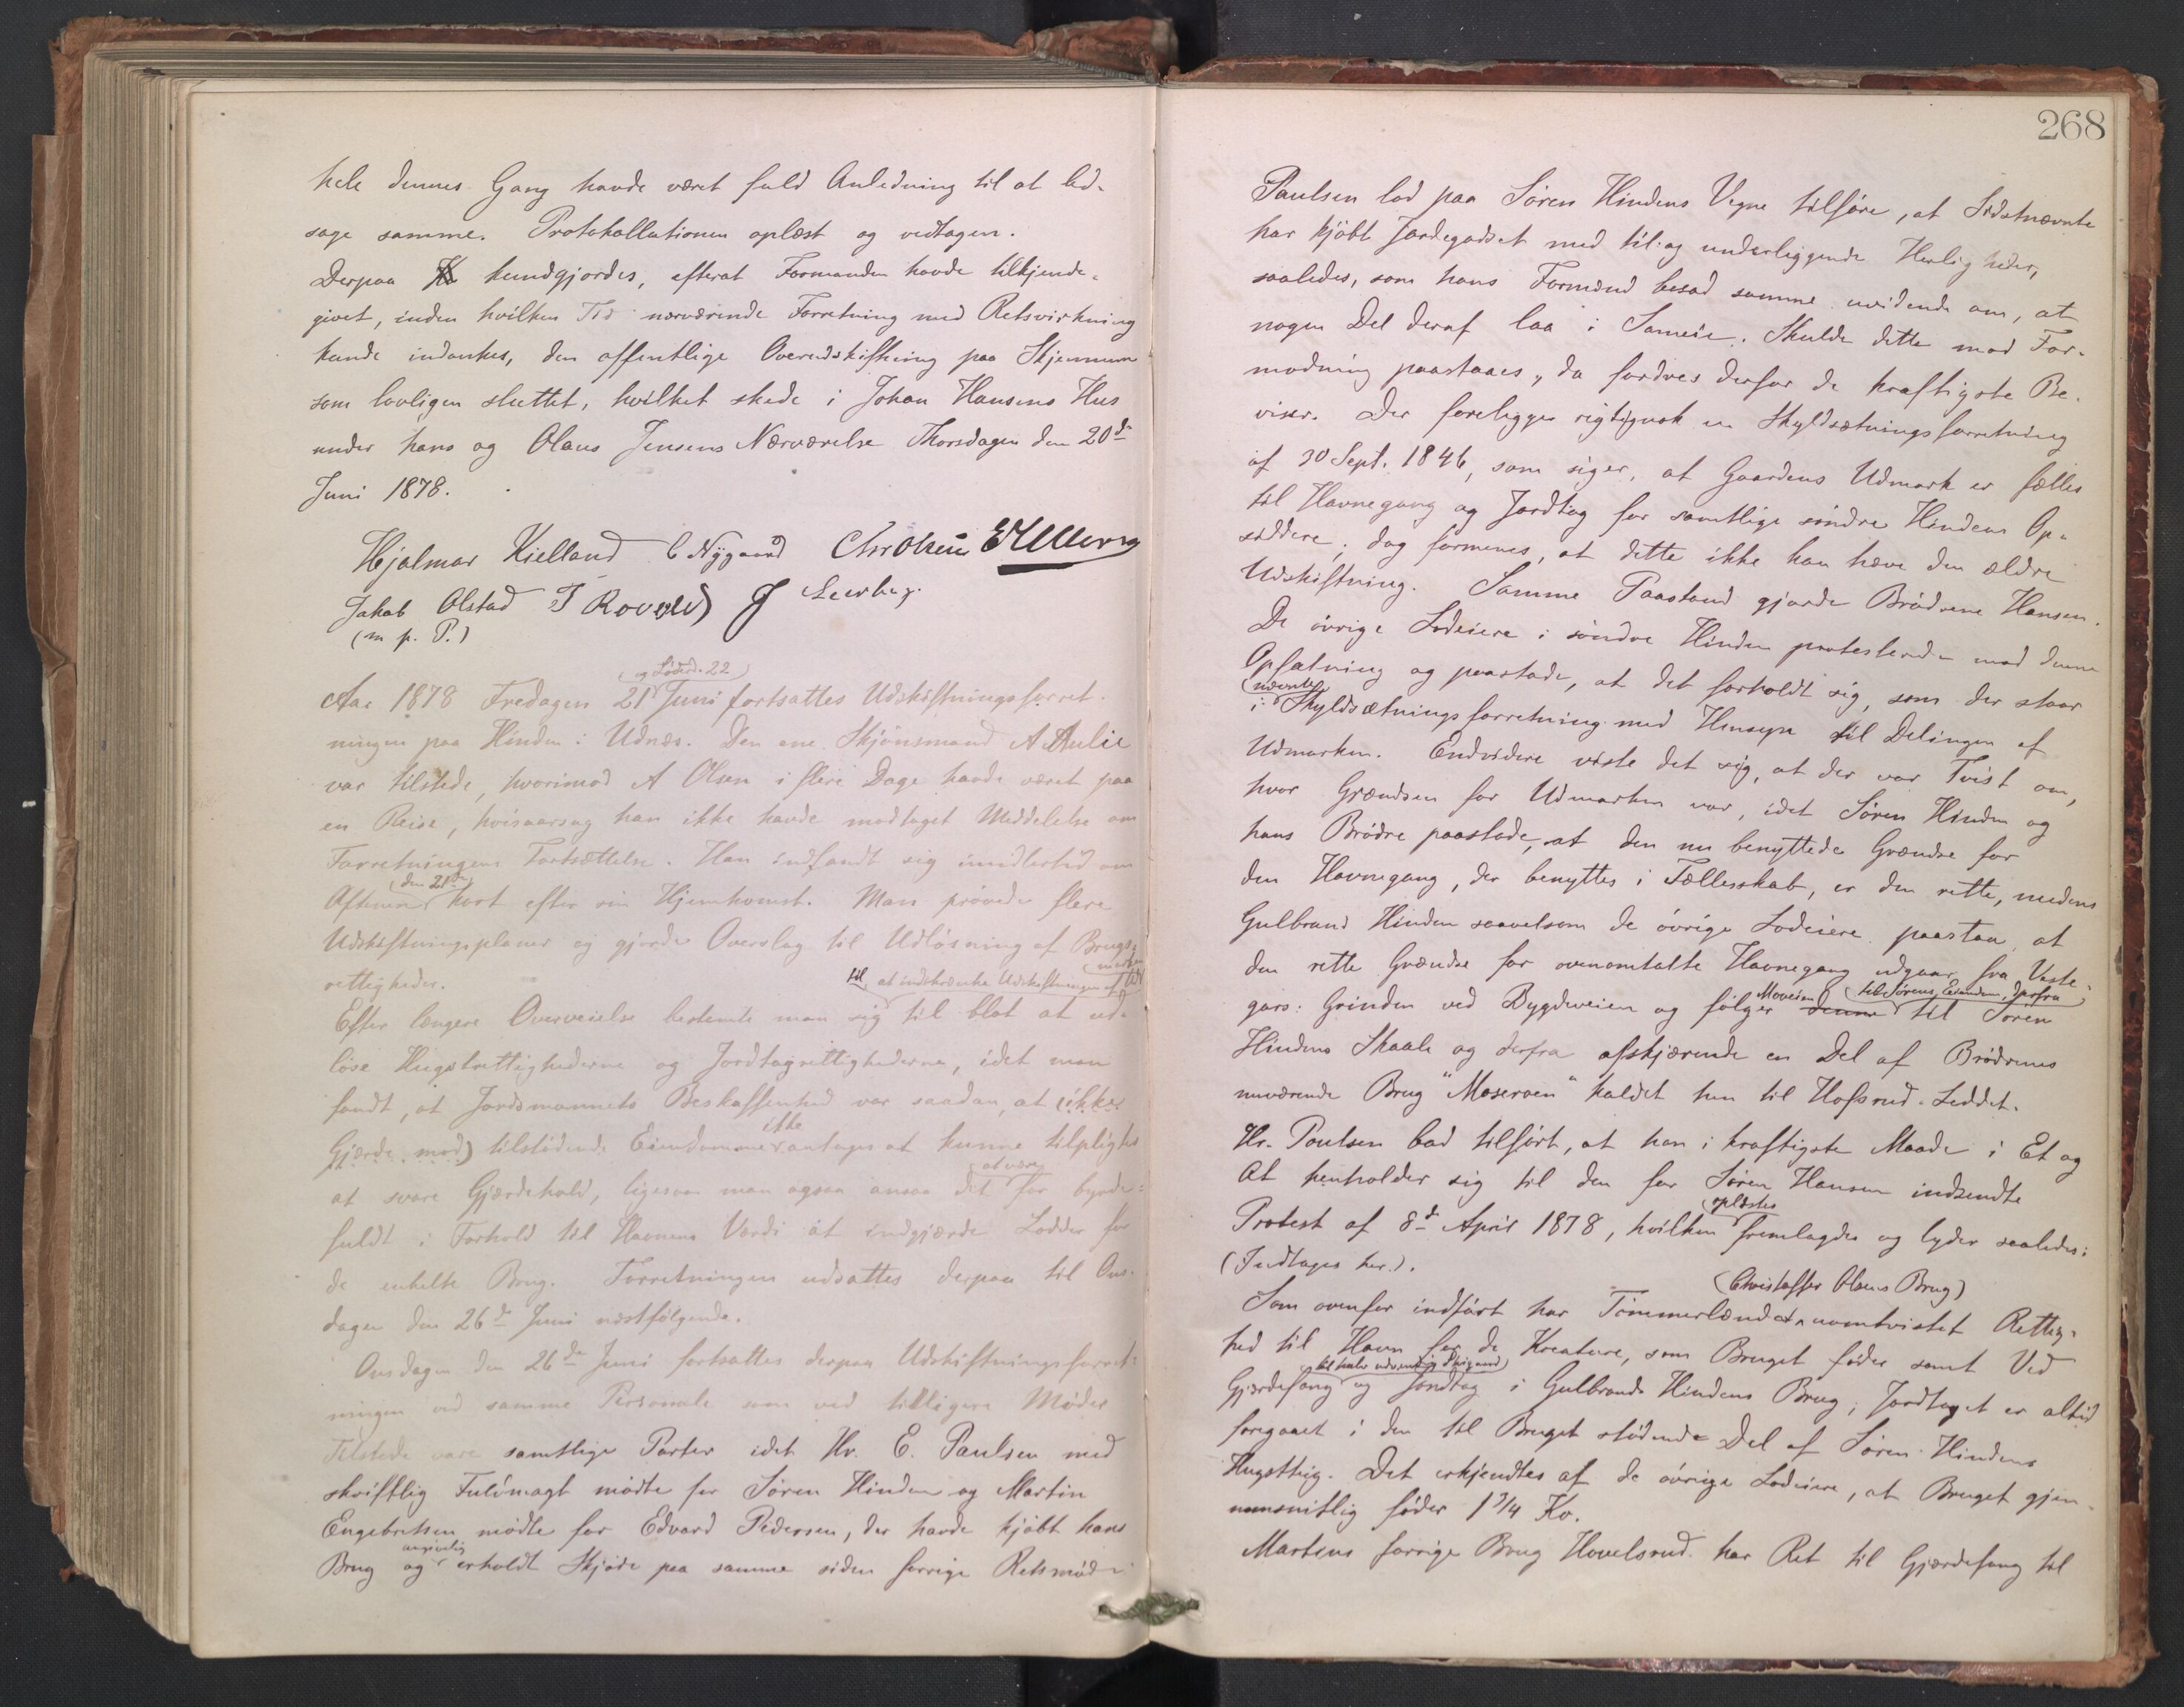 hele dennes Gang havde været fuld Anledning til at led-
sage samme. Protokollationen oplæst og vedtagen.
Derpaa kundgjordes, efterat Formanden havde tilkjende-
givet, inden hvilken Tid nærværende Forretning med Retsvirkning
kunde indankes, den offentlige Overudskiftning paa Skjennum
som lovligen sluttet, hvilket skede i Johan Hansens Hus
under hans og Olaus Jensens Nærværelse Thorsdagen den 20de
Juni 1878.
Hjalmar Kielland C Nygaard Chr Olsen
Jakob Olstad
(m p. P.)
(og Löverd. 22)
Aar 1878 Fredagen 21de Juni fortsattes Udskiftningsforret-
ningen paa Hinden i Udnæs. Den ene Skjönsmand A Aulie
var tilstede, hvorimod A Olsen i flere Dage havde været paa
en Reise, hvisaarsag han ikke havde modtaget Meddelelse om
Forretningens Fortsættelse. Han indfandt sig imidlertid om
(den 21de)
Aftenen kort efter sin Hjemkomst. Man prövede flere
Udskiftningsplaner og gjorde Overslag til Udlösning af Brugs-
rettigheder.
til at indskrænke Udskiftningen af
Efter længere Overveielse bestemte man sig til blot at ud-
löse Hugstrettighederne og Jordtagrettighederne, idet man
fandt, at Jordsmonnets Beskaffenhed var saadan, at (ikke
ikke
Gjærde mod) tilstödende Eiendomme antages at kunne tilpligtes
(at være)
at svare Gjærdehold, ligesom man ogsaa ansaa det for byrde-
fuldt i Forhold til Havnens Værdi at indgjærde Lodder for
de enkelte Brug. Forretningen udsattes derpaa til Ons-
dagen den 26de Juni næstfölgende.
Onsdagen den 26de Juni fortsattes derpaa Udskiftningsforret-
ningen ved samme Personale som ved tidligere Möder
Tilstede vare samtlige Parter idet Hr. E. Paulsen med
skriftlig Fuldmagt mödte for Sören Hinden og Martin
Engebretsen mödte for Edvard Pedersen, der havde kjöbt hans
angivelig
Brug og erholdt Skjöde paa samme siden forrige Retsmöde
268
Paulsen lod paa Sören Hindens Vegne tilföre, at Sidstnævnte
har kjöbt Jordegodset med til- og underliggende Herligheder,
saaledes, som hans Formænd besad samme uvidende om, at
nogen Del deraf laa i Sameie. Skulde dette mod For-
modning paastaaes, da fordres derfor de kraftigste Be-
viser. Der foreligger rigtignok en Skyldsætningsforretning
af 30 Sept. 1846, som siger, at Gaardens Udmark er fælles
til Havnegang og Jordtag for samtlige söndre Hindens Op-
siddere, dog formenes, at dette ikke kan hæve den ældre
Udskiftning. Samme Paastand gjorde Brödrene Hansen.
De övrige Lodeiere i söndre Hinden protesterede mod denne
Opfatning og paastode, at det forholdt sig, som der staar
(nævnte)
i Skyldsætningsforretning med Hensyn til Delingen af
Udmarken. Endvidere viste det sig, at der var Tvist om,
hvor Grændsen for Udmarken var, idet Sören Hinden og
hans Brödre paastode, at den nu benyttede Grændse for
den Havnegang, der benyttes i Fællesskab, er den rette, medens
Gulbrand Hinden saavelsom de övrige Lodeiere paastaa, at
den rette Grændse for ovenomtalte Havnegang udgaar fra Veste-
Moveien (til Sörens Eiendom, derfra)
gars: Grinden ved Bygdeveien og fölger denne til Sören
Hindens Skaale og derfra afskjærende en Del af Brödrenes
nuværende Brug "Moserøen" kaldet hen til Hofsrud-Leddet.
Hr. Paulsen bad tilfört, at han i kraftigste Maade i Et og
Alt henholder sig til den for Sören Hansen indsendte
(oplæstes
Protest af 8de April 1878, hvilken fremlagdes og lyder saaledes:
(Indtages her.).
(Christoffer Olsens Brug)
Som ovenfor indfört har Tömmerlændet uomtvistet Rettig-
hed til Havn for de Kreature, som Bruget föder samt Ved
Gjærdefang og Jordtag i Gulbrands Hindens Brug; Jordtaget er altid
foregaaet i den til Bruget stödende Del af Sören Hindens
Hugstteig. Det erkjendtes af de övrige Lodeiere, at Bruget gjen-
nemsnitlig föder 1 3/4 Ko.
Martins forrige Brug Hovelsrud har Ret til Gjærdefang til